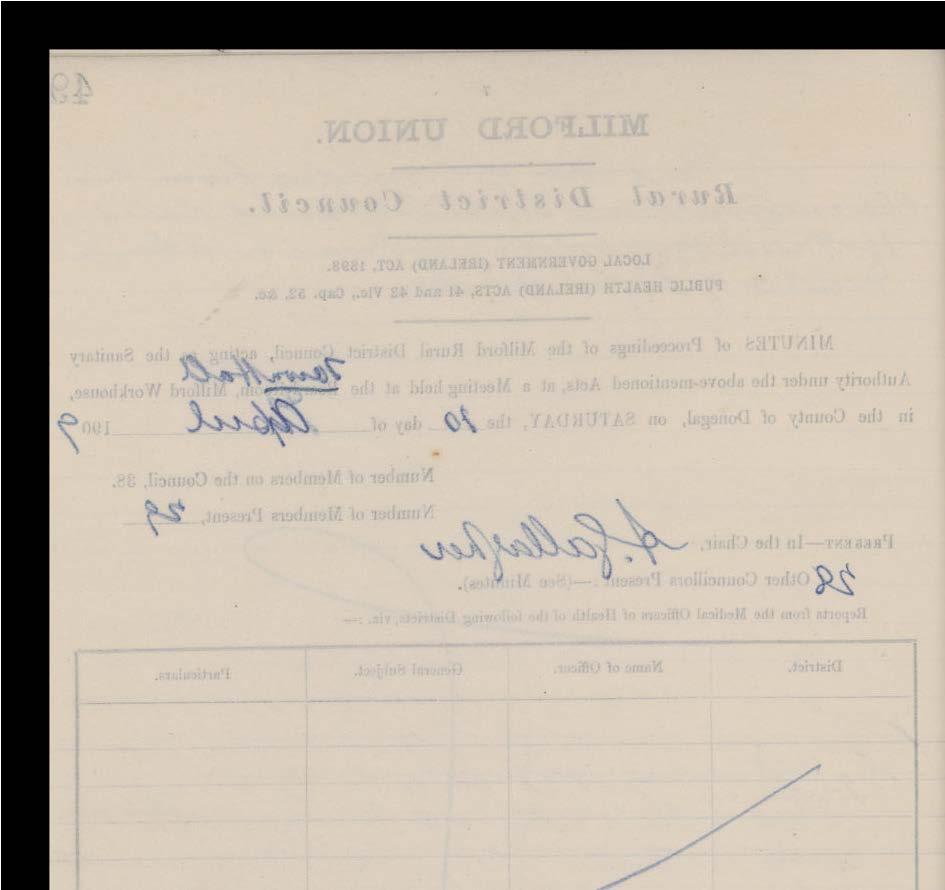 49
7
MILFORD UNION.
Rural District Council.
LOCAL GOVERNMENT (IRELAND) ACT, 1898.
PUBLIC HEALTH (IRELAND) ACTS, 41 and 42 Vic., Cap. 52, &c.
MINUTES of Proceedings of the Milford Rural District Council, acting as the Sanitary
Town Hall
Authority under the above-mentioned Acts, at a Meeting held at the Milford Workhouse,
in the County of Donegal, on SATURDAY, the 10 day of April 1909
Number of Members on the Council, 38.
Number of Members Present, 29
PRESENT—In the Chair, A. Gallagher
28 Other Councillors Present :—(See Minutes).
Reports from the Medical Officers of Health of the following Districts, viz. :—
District. Name of Officer. General Subject. Particulars.